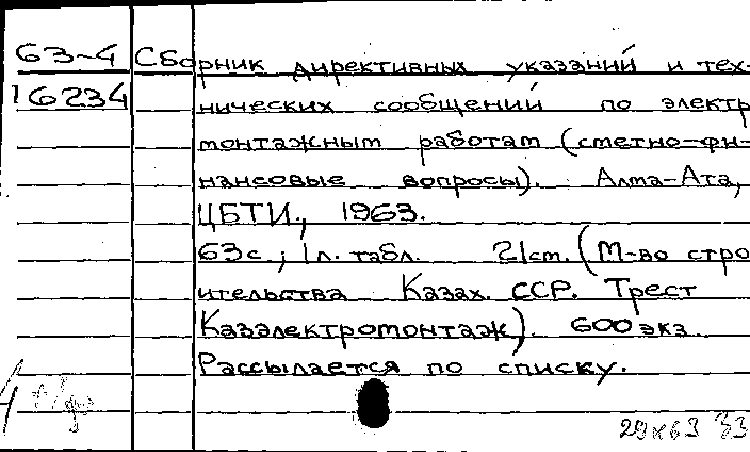 63-4 Сборник директивных указаний и тех-
16234 нических сообщений по электр
монтажным работам (сметно-фи-
нансовые вопросы). Алма-Ата,
ЦБТИ., 1963.
63с.; 1л. табл. 21см. (М-во стро
ительства Казах. ССР. Трест
Казэлектромонтаж). 600 экз.
Рассылается по списку.
29к63 33